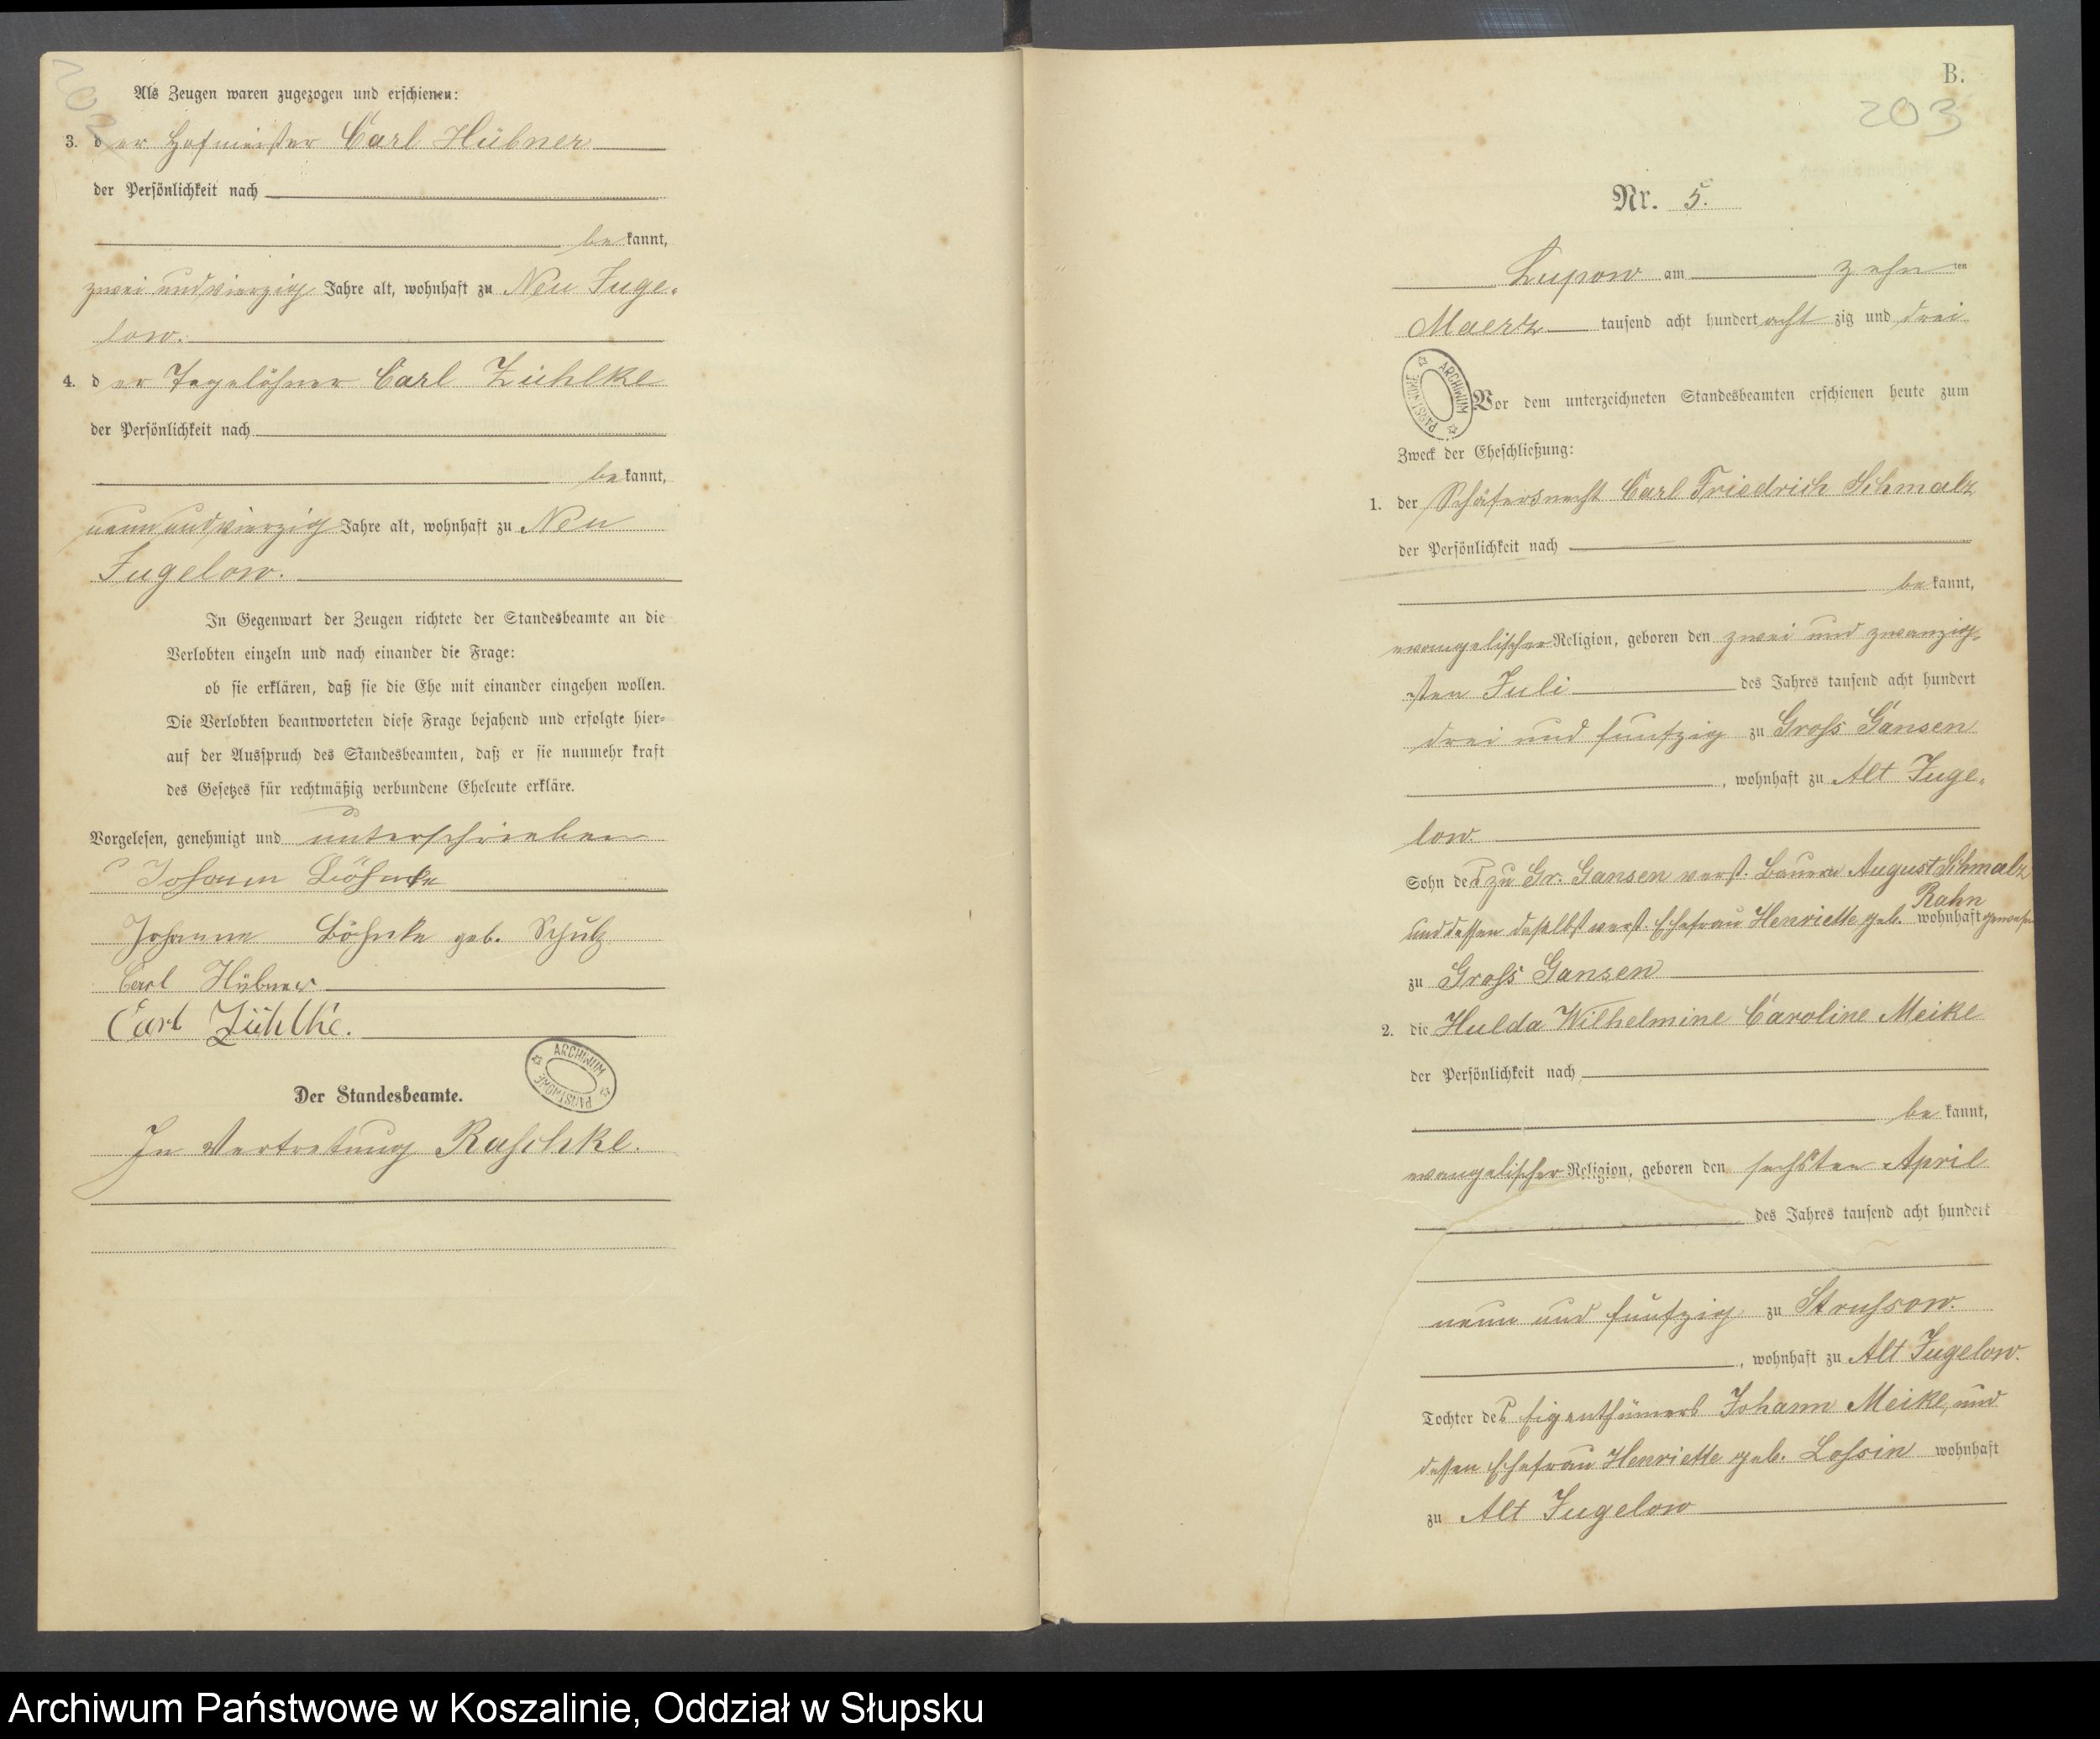 202
Als Zeugen waren zugezogen und erschienen:
3. der Hofmeister Carl Hübner
der Persönlichkeit nach
bekannt,
zwei und vierzig Jahre alt, wohnhaft zu Neu Juge-
low.
4. der Tagelöhner Carl Zühlke
der Persönlichkeit nach
bekannt,
neun und vierzig Jahre alt, wohnhaft zu Neu
Jugelow.
In Gegenwart der Zeugen richtete der Standesbeamte an die
Verlobten einzeln und nach einander die Frage:
ob sie erklären, daß sie die Ehe mit einander eingehen wollen.
Die Verlobten beantworteten diese Frage bejahend und erfolgte hier-
auf der Ausspruch des Standesbeamten, daß er sie nunmehr kraft
des Gesetzes für rechtmäßig verbundene Eheleute erkläre.
Vorgelesen, genehmigt und unterschrieben
Johann Böhnke
Johanne Böhnke geb. Schulz
Carl Hübner
Carl Zühlke.
ARCHIWUM PAŃSTWOWE
Der Standesbeamte.
In Vertretung Raschke.
B.
203
Nr. 5.
Lupow am zehnten
Maerz tausend acht hundert achtzig und drei
ARCHIWUM PAŃSTWOWE
Vor dem unterzeichneten Standesbeamten erschienen heute zum
Zweck der Eheschließung:
1. der Schäfersnecht Carl Friedrich Schmalz
der Persönlichkeit nach
bekannt,
evangelischer Religion, geboren den zwei und zwanzig-
sten Juli des Jahres tausend acht hundert
drei und funfzig zu Groß Gansen
, wohnhaft zu Alt Juge-
low.
Sohn des zu Gr. Gansen verst. Bauern August Schmalz
und dessen daselbst verst. Ehefrau Henriette geb. Rahn wohnhaft gewesen
zu Groß Gansen
2. die Hulda Wilhelmine Caroline Meike
der Persönlichkeit nach
bekannt,
evangelischer Religion, geboren den sechsten April
des Jahres tausend acht hundert
neun und funfzig zu Strussow.
, wohnhaft zu Alt Jugelow.
Tochter des Eigenthümers Johann Meike, und
dessen Ehefrau Henriette geb. Lossin wohnhaft
zu Alt Jugelow
Archiwum Państwowe w Koszalinie, Oddział w Słupsku